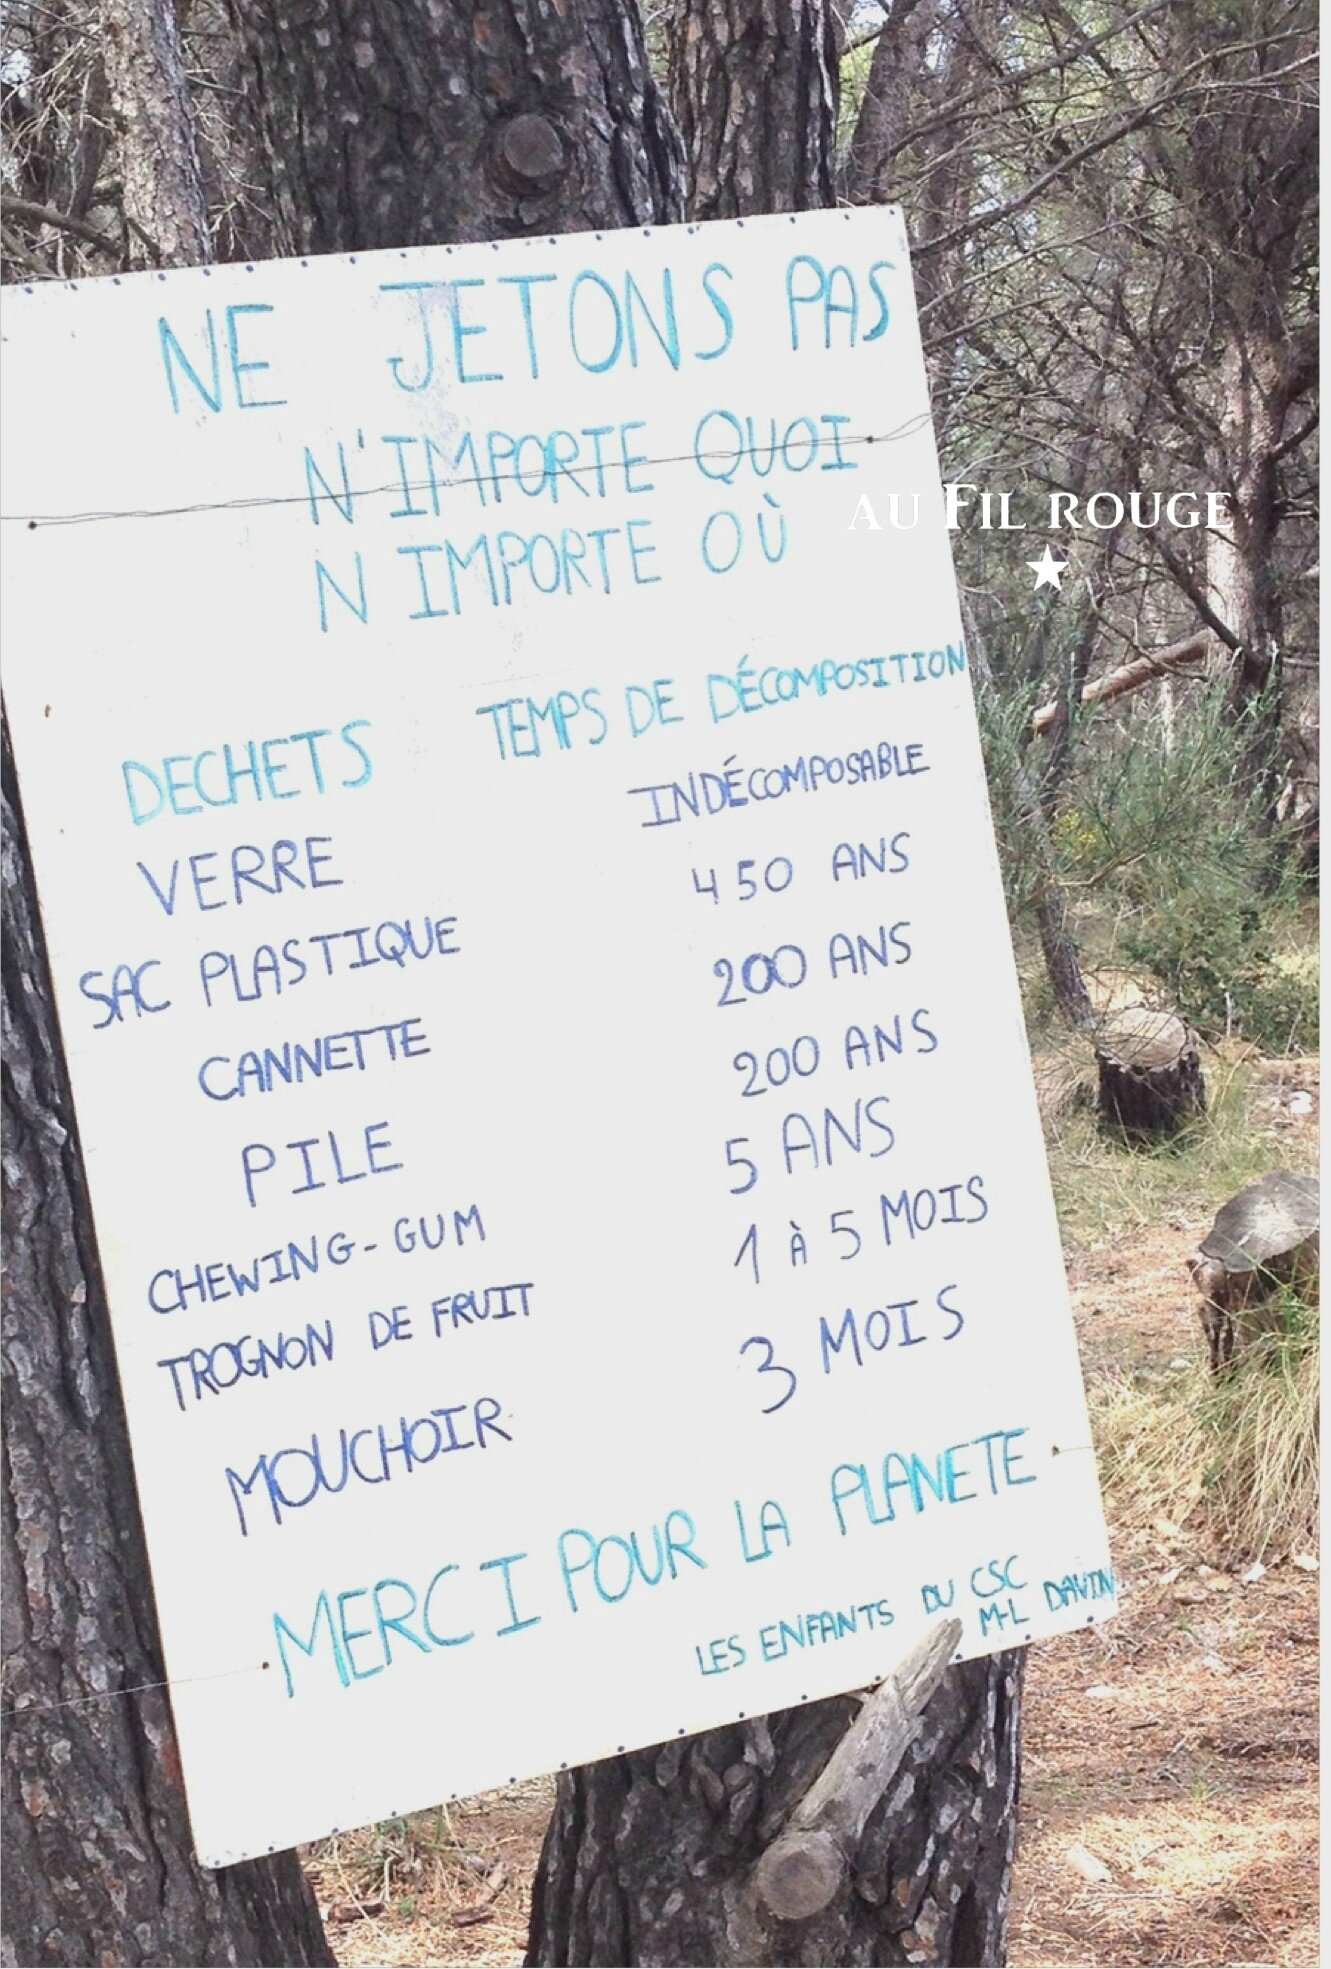 NE JETONS PAS
N'IMPORTE QUOI
N IMPORTE OÙ
AU FIL ROUGE
DECHETS TEMPS DE DÉCOMPOSITION
VERRE INDÉCOMPOSABLE
SAC PLASTIQUE 450 ANS
CANNETTE 200 ANS
PILE 200 ANS
CHEWING-GUM 5 ANS
TROGNON DE FRUIT 1 À 5 MOIS
MOUCHOIR 3 MOIS
MERCI POUR LA PLANETE
LES ENFANTS DU CSC
M-L DAVIN